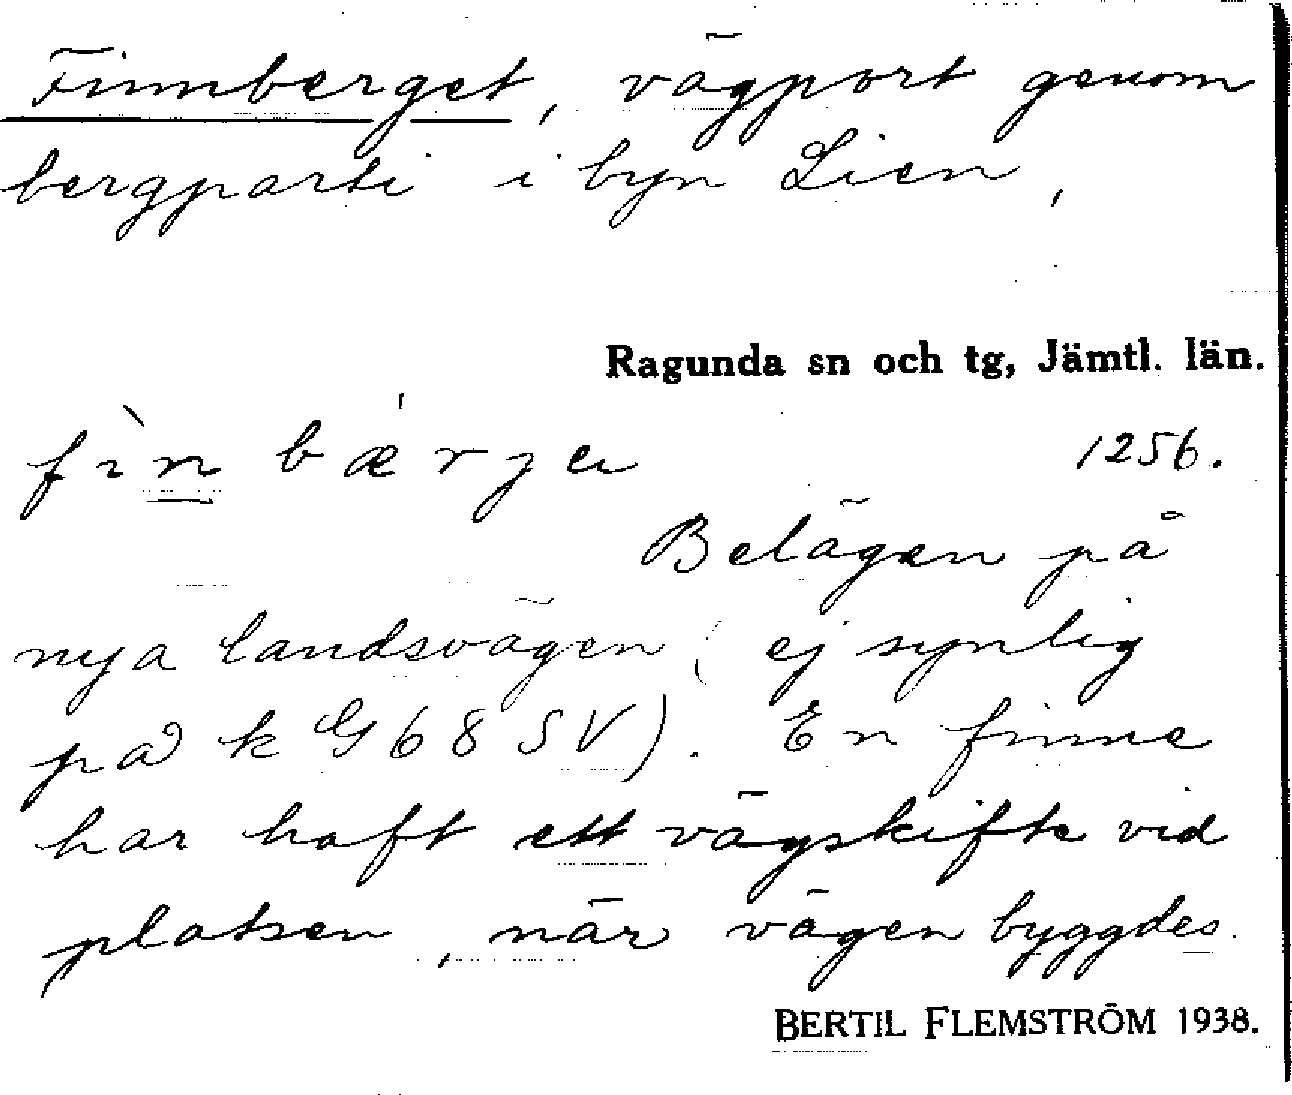 Finnberget, vägport genom
bergparti i byn Lien,
Ragunda sn och tg, Jämtl. län.
1256.
Belägen på
nya landsvägen (ej synlig
på k G68SV). En finne
har haft ett vägskifte vid
platsen, när vägen byggdes.
BERTIL FLEMSTRÖM 1938.